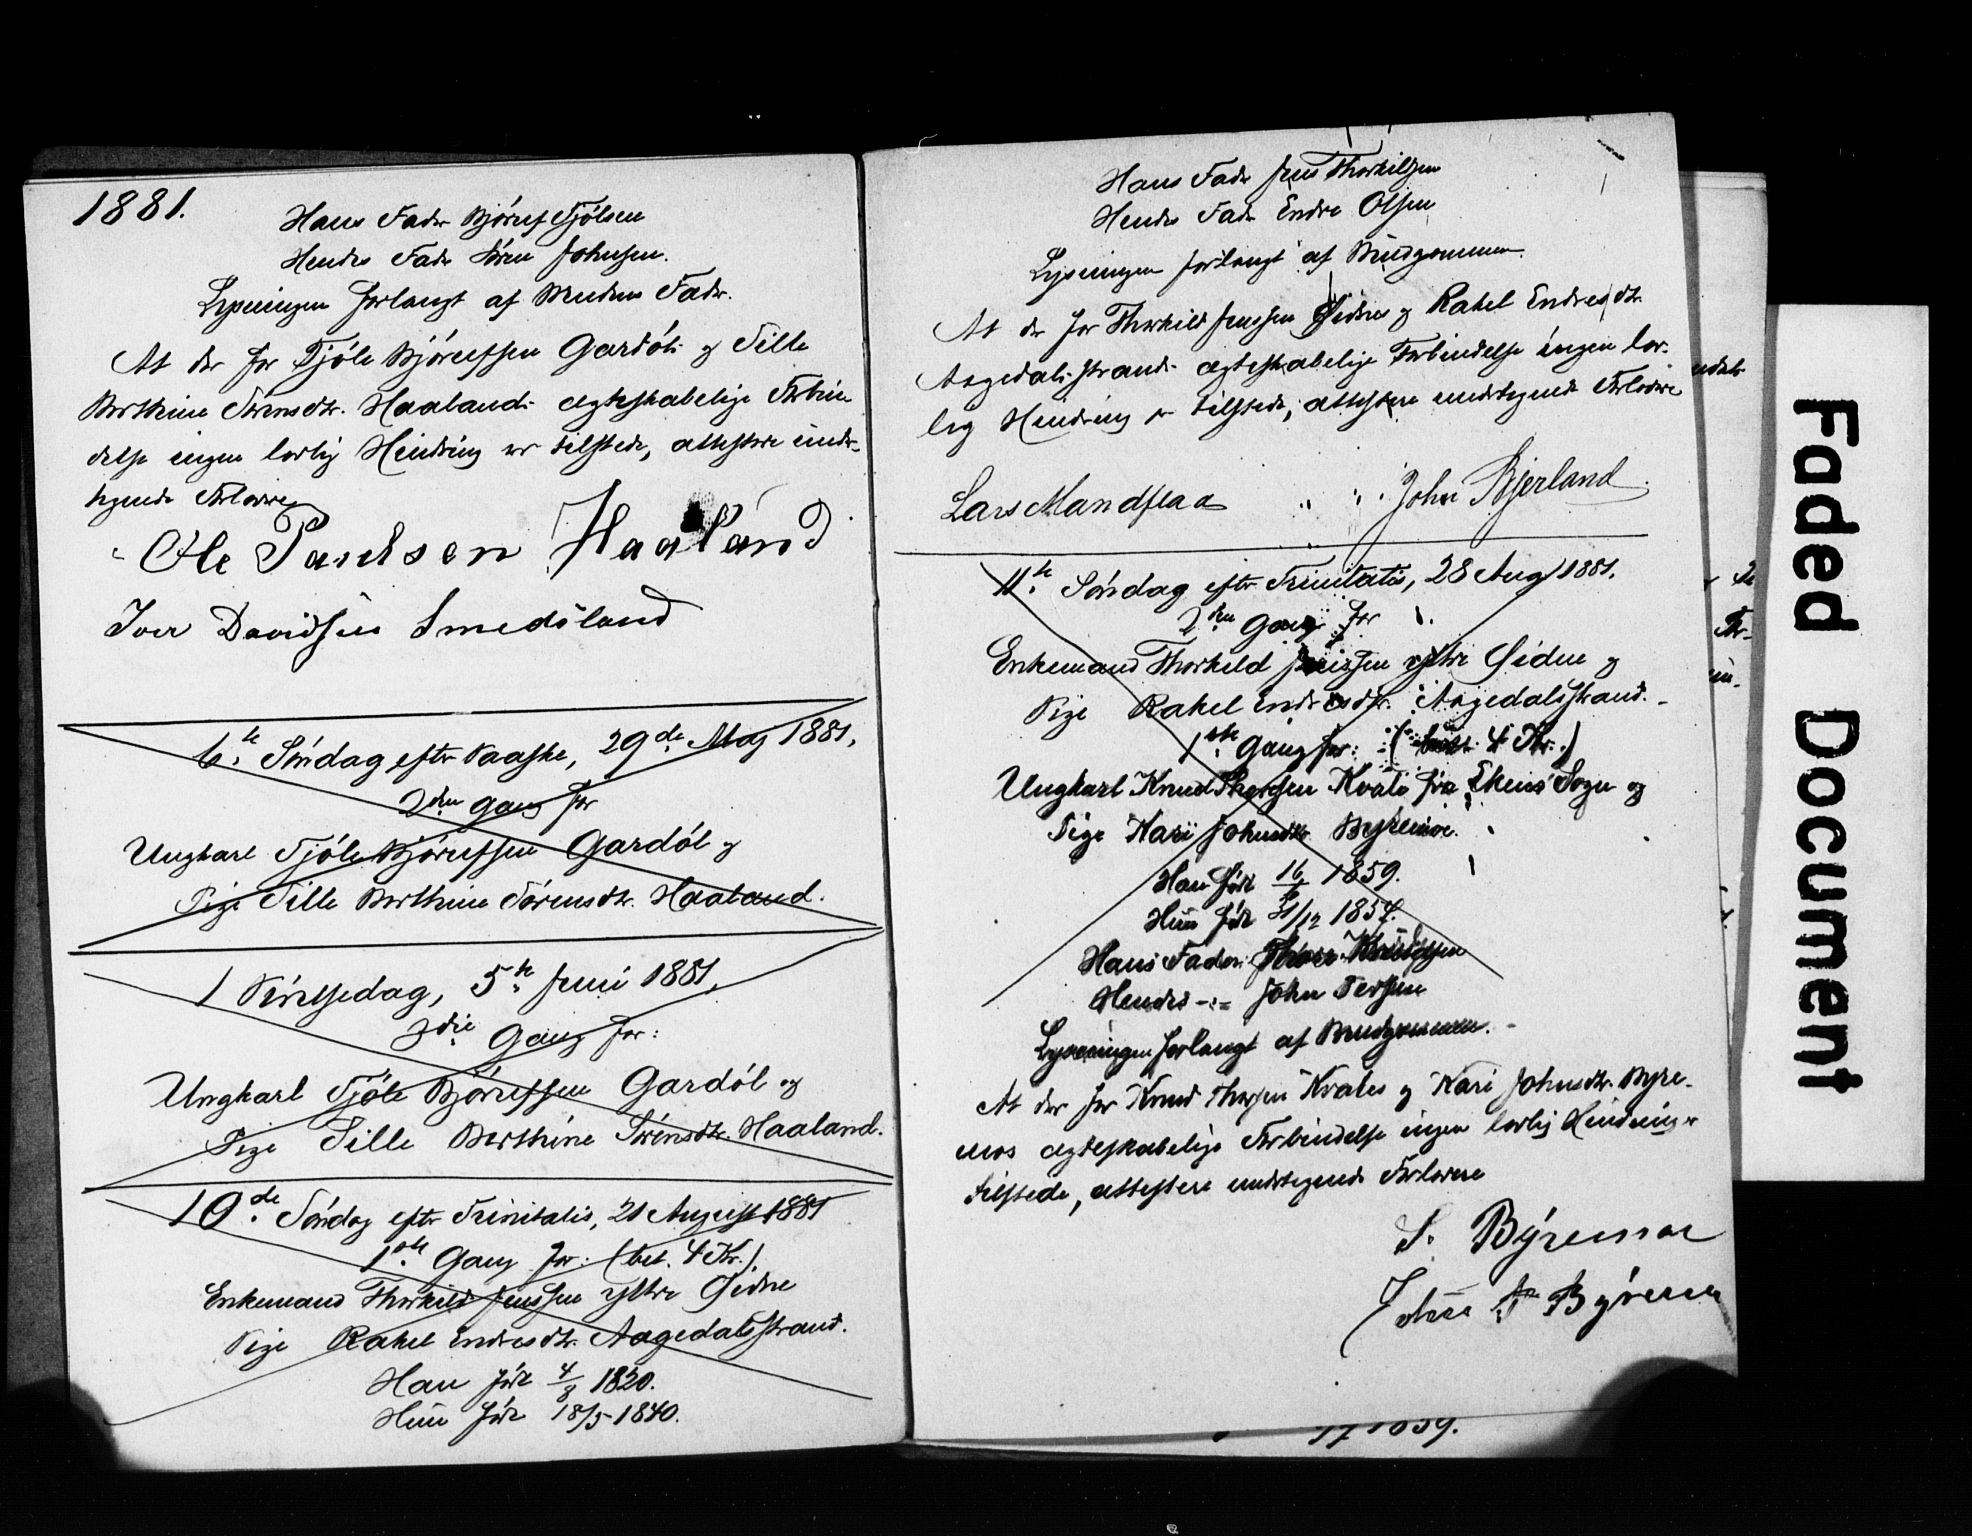 1881.
Hans Fader Bjórulf Tjólsen
Hendes Fader Sören Johnsen.
Lysningen forlangt af Brudens Fader.
At der for Tjöls Bjórulfsen Gardóls og Sille
Berthine Sörensdtr. Haalands ægteskabelige Forbin
delse ingen lovlig Hindring er tilstede, attestere under-
tegnede Forlovere
Ole Haaland
Iver Davidsen Smedsland
6te Söndag efter Paaske, 29de Maj 1881,
2den Gang for
Ungkarl Tjöls Bjórulfsen Gardól og
Pige Sille Berthine Sörensdtr. Haaland.
1 Pintsedag, 5te Juni 1881,
3die Gang for:
Ungkarl Tjöls Bjórulfsen Gardól og
Pige Sille Berthine Sörensdtr. Haaland.
10de Söndag efter Trinitatis, 21 August 1881
1ste Gang for: (bet. 4 Kr.)
Enkemand Thorkild Jenssen ystre Øidne
Pige Rakel Endresdtr. Aagedalsstrand.
Han født 4/8 1820.
Hun født 18/5 1840.
Hans Fader Jens Thorkilsen
Hendes Fader Endre Olsen
Lysningen forlangt af Brudgommen.
At der for Thorkild Jenssen Øidnes og Rakel Endresdtr.
Aagedalsstrands ægteskabelige Forbindelse ingen lov-
lig Hindring er tilstede, attestere undertegnede Forlovere
Lars Mandflaa " " John Bjerland.
11te Söndag efter Trinitatis, 28 Aug 1881.
2den Gang for
Enkemand Thorkild Jenssen ystre Øidne og
Pige Rakel Endresdtr. Aagedalsstrand.
1ste Gang for: (bet. 4 Kr.)
Ungkarl Knud Thorsen Kvaas fra Ekens Sogn og
Pige Kari Johnsdtr. Byremoe.
Han født 16/6 1859.
Hun født 31/12 1857.
Hans Fader Knudsen
Hendes -"- John Tersen
Lysningen forlangt af Brudgommen.
At der for Knud Thorsen Kvaases og Kari Johnsdtr. Byre-
moes ægteskabelige Forbindelse ingen lovlig Hindring er
tilstede, attestere undertegnede Forlovere
S. Býremoe
Faded Document